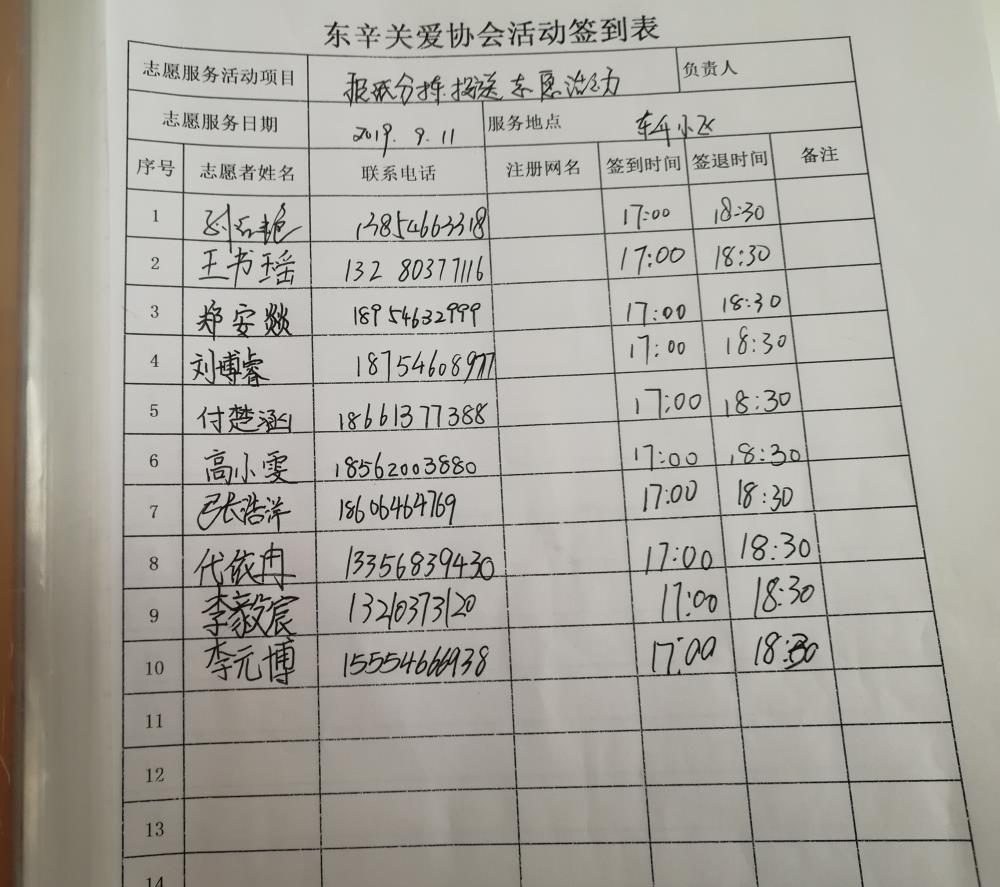 东辛关爱协会活动签到表
志愿服务活动项目 报纸分拣投送志愿活动 负责人
志愿服务日期 2019. 9. 11 服务地点
序号 志愿者姓名 联系电话 注册网名 签到时间 签退时间 备注
1 13854663318 17:00 18:30
2 王书瑶 132 80377116 17:00 18:30
3 郑安燚 18954632999 17:00 18:30
4 刘博睿 18754608977 17:00 18:30
5 付楚涵 18661377388 17:00 18:30
6 高小雯 18562003880 17:00 18:30
7 张浩洋 18606464769 17:00 18:30
8 代依冉 13356839430 17:00 18:30
9 李毅宸 13210373120 17:00 18:30
10 李元博 15554666938 17:00 18:30
11
12
13
14